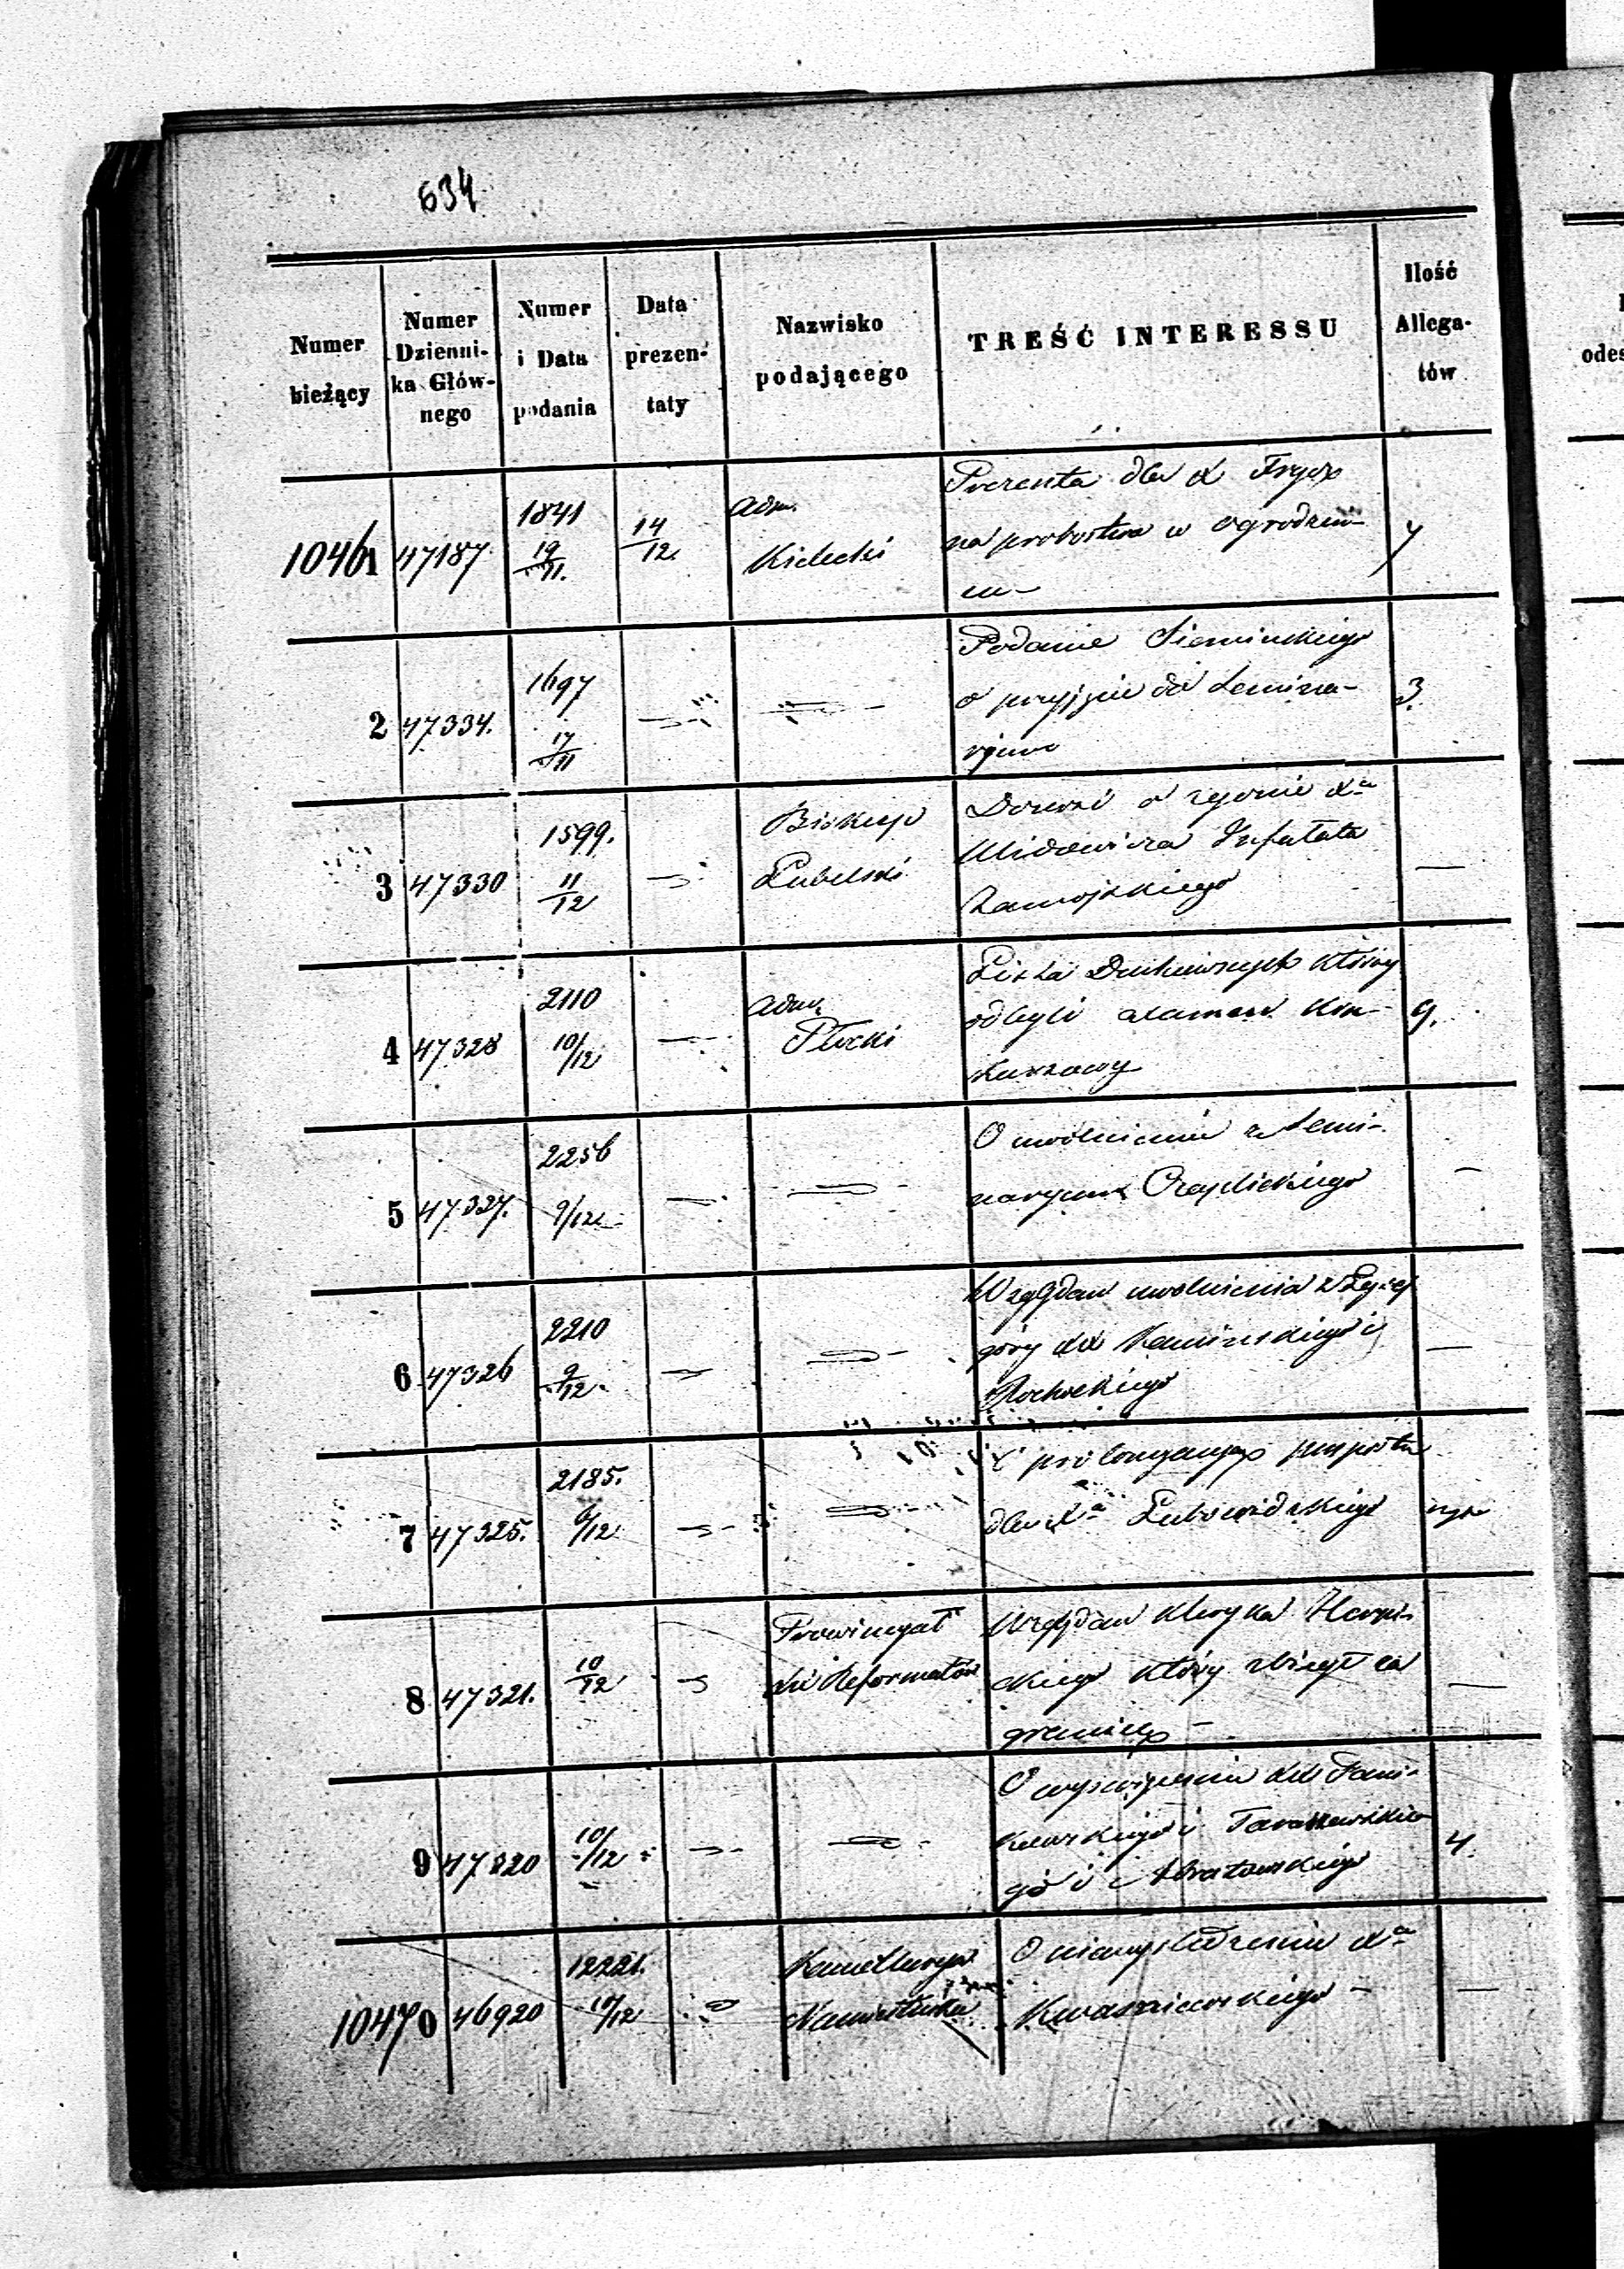 634
Numer bieżący
Numer Dzienni-ka Głów-nego
Numer i Data podania
Data prezen-taty
Nazwisko podającego
TREŚĆ INTERESSU
Ilość Allega-tów
odes
10461 47187 1841 19/11. 14/12 Adm. Kielecki
Prezenta dla X Frycz
na probostwo w Ogrodzień-
cu 7
2 47334. 1697 17/11
Podanie Siemińskiego
o przyjęcie do Semina-
rjum 3
3 47330 1599. 11/12 Biskup Lubelski
Donosi o zgonie Xa
Infułata
Zamojskiego —
4 47328 2110 10/12 Adm. Płocki
Lista Duchownych którzy
odbyli examen kon-
kursowy 9.
5 47327. 2256 9/12
O uwolnieniu z Semi-
naryum Czaplickiego —
6 47326 2210 9/12
Względem uwolnienia z Łysej
góry XX Kamińskiego i
Rochockiego —
7 47325. 2185. 6/12
O prolongacyą paszportu
dla Xa Lubowidzkiego
8 47321. 10/12 Prowincyał XX Reformatów
Względem kleryka
który zbiegł za
granicę —
9 47320 10/12
O wyświęceniu XX Fani-
kowskiego i Taraszewskie-
go i 4
10470 46920 12221. 10/12 Kancellarya Namiestnika
O niewyśledzeniu Xa
Kwaśniewskiego —